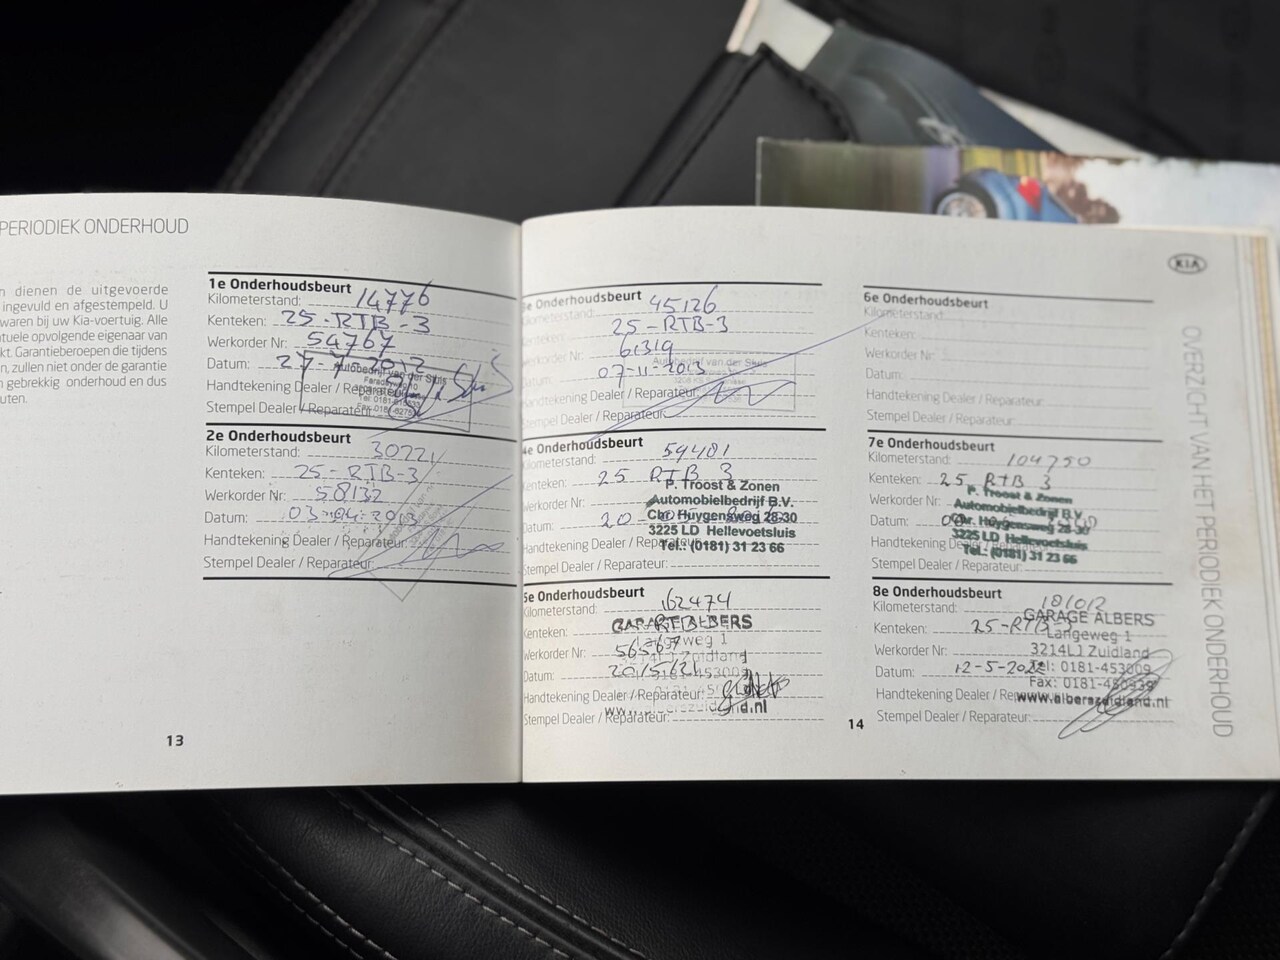 PERIODIEK ONDERHOUD
n dienen de uitgevoerde
ingevuld en afgestempeld. U
waren bij uw Kia-voertuig. Alle
tuele opvolgende eigenaar van
kt. Garantieberoepen die tijdens
n, zullen niet onder de garantie
n gebrekkig onderhoud en dus
uten.
1e Onderhoudsbeurt
Kilometerstand: 14776
Kenteken: 25-RTB-3
Werkorder Nr: 54767
Datum: 27-7-2012
Handtekening Dealer / Reparateur:
Stempel Dealer / Reparateur:
Autobedrijf van der Sluis
Faradayweg 10
2e Onderhoudsbeurt
Kilometerstand: 30221
Kenteken: 25-RTB-3
Werkorder Nr: 58132
Datum: 03-04-2013
Handtekening Dealer / Reparateur:
Stempel Dealer / Reparateur:
13
e Onderhoudsbeurt
ilometerstand: 45126
enteken: 25-RTB-3
erkorder Nr: 61319
Datum: 07-11-2013
Autobedrijf van der Sluis
Handtekening Dealer / Reparateur:
Stempel Dealer / Reparateur:
4e Onderhoudsbeurt
Kilometerstand: 59481
Kenteken: 25 RTB 3
Werkorder Nr:
Datum: 20
Handtekening Dealer / Reparateur:
Stempel Dealer / Reparateur:
P. Troost & Zonen
Automobielbedrijf B.V.
Chr. Huygensweg 28-30
3225 LD Hellevoetsluis
Tel.: (0181) 31 23 66
5e Onderhoudsbeurt
Kilometerstand: 62474
Kenteken:
Werkorder Nr: 56567
Datum:
Handtekening Dealer / Reparateur:
Stempel Dealer / Reparateur:
GARAGE ALBERS
6e Onderhoudsbeurt
Kilometerstand:
Kenteken:
Werkorder Nr:
Datum:
Handtekening Dealer / Reparateur:
Stempel Dealer / Reparateur:
7e Onderhoudsbeurt
Kilometerstand: 104750
Kenteken: 25 RTB 3
Werkorder Nr:
Datum:
Handtekening Dealer / Reparateur:
Stempel Dealer / Reparateur:
P. Troost & Zonen
Automobielbedrijf B.V.
Chr. Huygensweg 28-30
3225 LD Hellevoetsluis
Tel.: (0181) 31 23 66
8e Onderhoudsbeurt
Kilometerstand: 181012
Kenteken: 25-RTB 3
Werkorder Nr:
Datum: 12-5-2022
Handtekening Dealer / Reparateur:
Stempel Dealer / Reparateur:
GARAGE ALBERS
Langeweg 1
3214LJ Zuidland
Tel: 0181-453009
Fax: 0181-450939
www.alberszuidland.nl
14
KIA
OVERZICHT VAN HET PERIODIEK ONDERHOUD